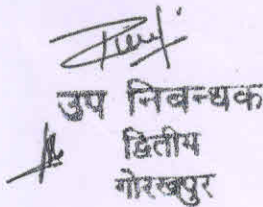 उप निबन्धक
द्वितीय
गोरखपुर